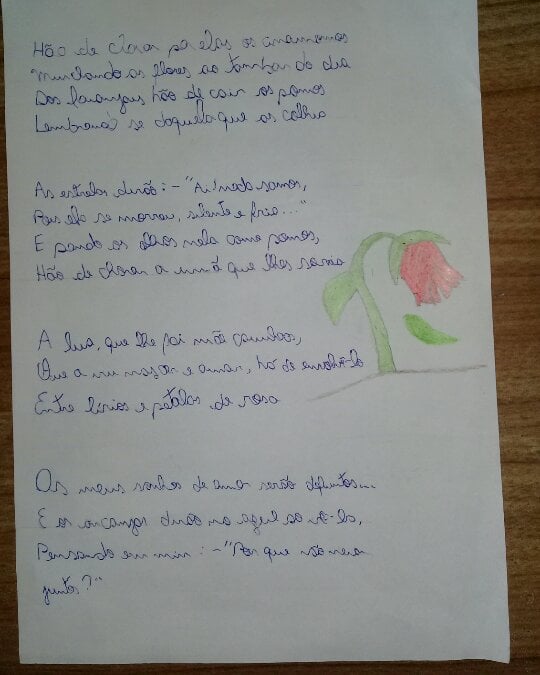 Hão de chorar por ela os cinamomos
Murchando as flores ao tombar do dia
Dos laranjais hão de cair os pomos
Lembrando se daquela que os colhia
As estrelas dirão: - "Ai! nada somos,
Pois ela se morreu, silente e fria..."
E pondo os olhos nela como pomos,
Hão de chorar a irmã que lhes sorria
A lua, que lhe foi mãe carinhosa,
Que a viu nascer e amar, há de envolvê-la
Entre lírios e pétalas de rosa
Os meus sonhos de amor serão defuntos...
E os arcanjos dirão no azul ao vê-la,
Pensando em mim: - "Por que não veio
juntos?"